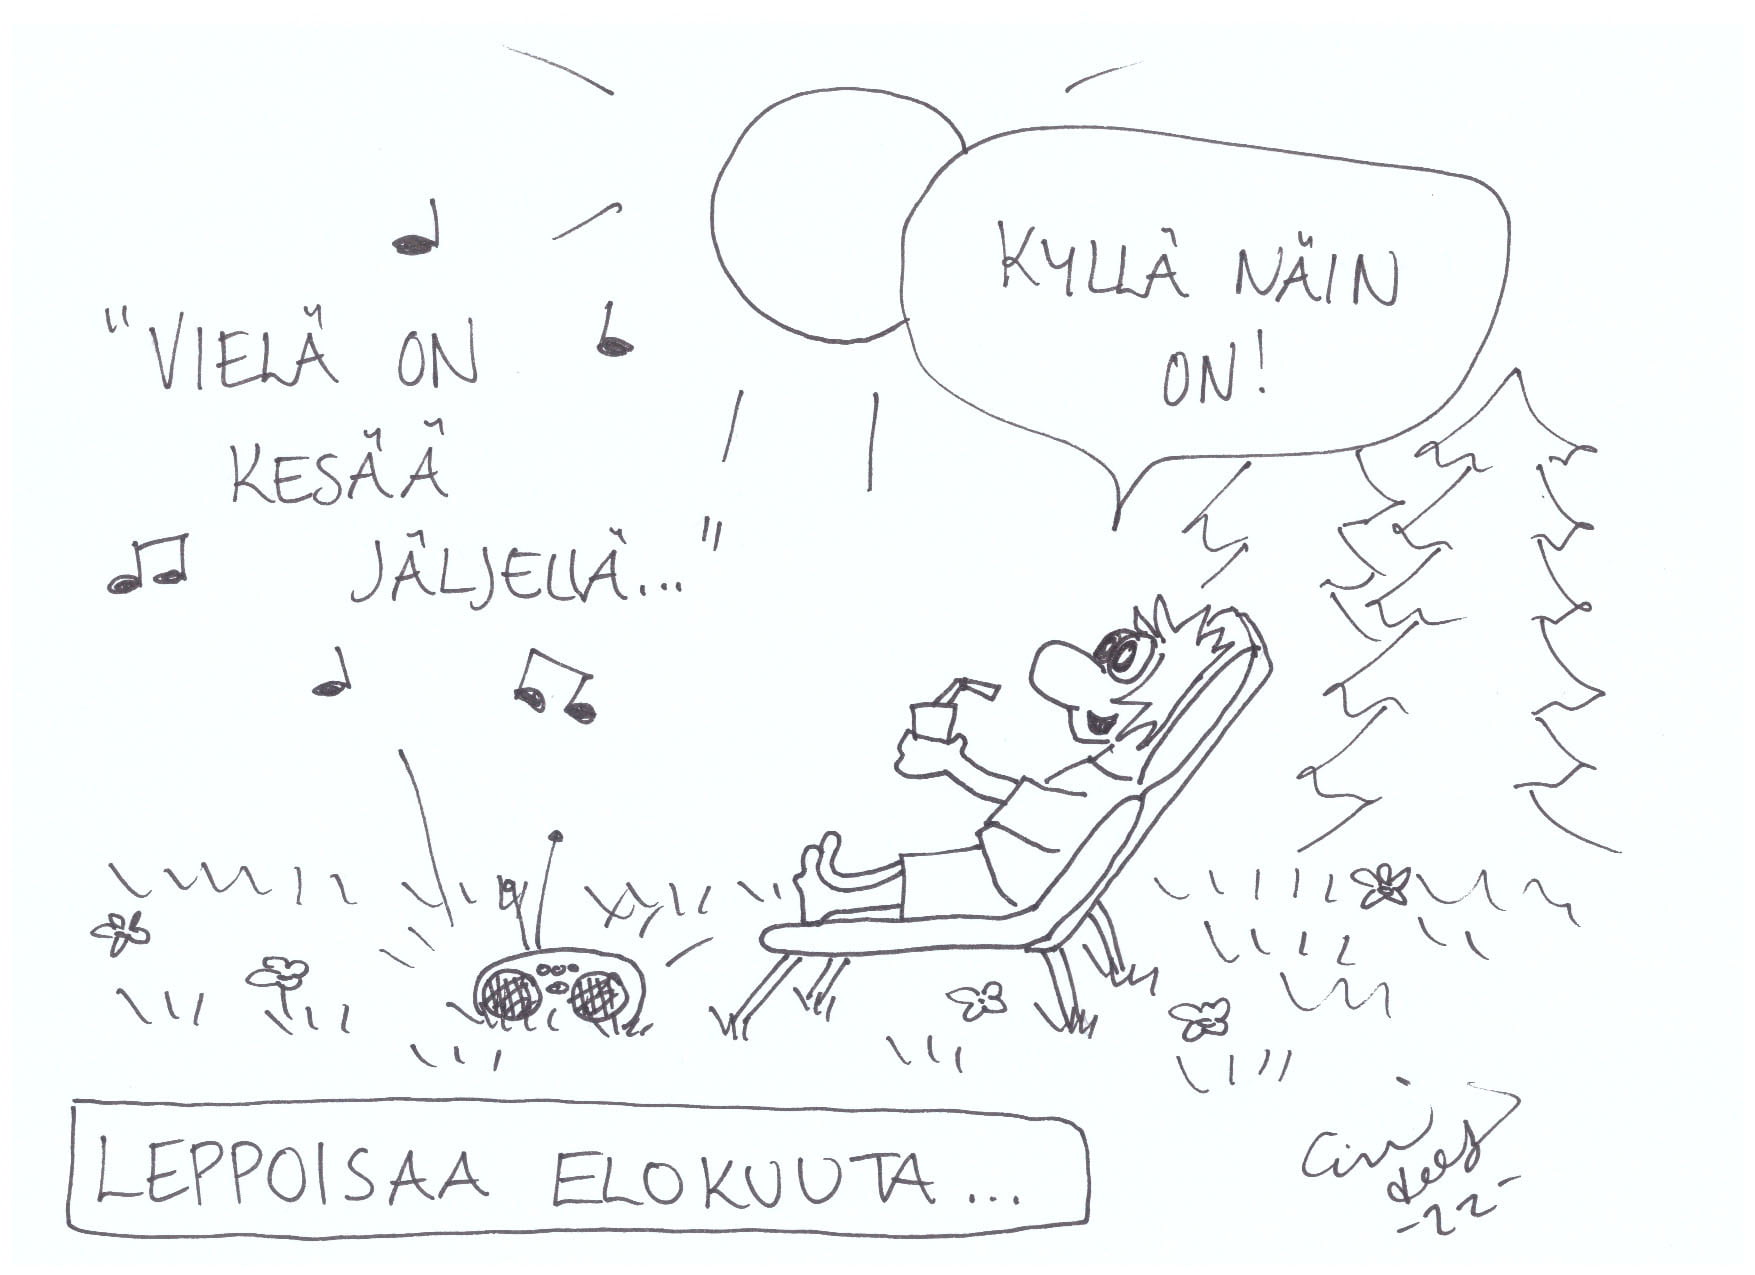 "VIELÄ ON
KESÄÄ
JÄLJELLÄ..."
KYLLÄ NÄIN
ON!
LEPPOISAA ELOKUUTA...
-22-